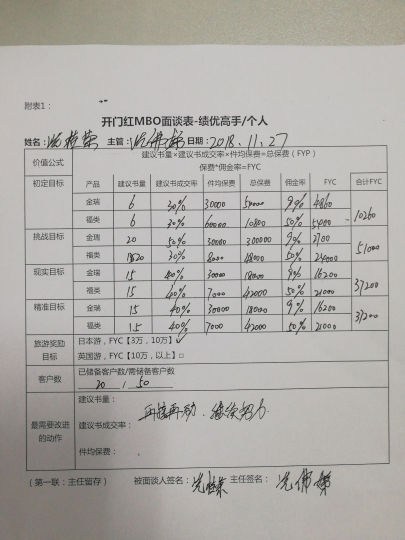 附表1：
开门红MBO面谈表-绩优高手/个人
姓名： 主管： 日期：2018.11.27
价值公式 建议书量×建议书成交率×件均保费=总保费（FYP）
保费*佣金率=FYC
初定目标 产品 建议书量 建议书成交率 件均保费 总保费 佣金率 FYC 合计FYC
金瑞 6 30% 30000 54000 9% 4860 10260
福类 6 30% 6000 10800 50% 5400
挑战目标 金瑞 20 50% 30000 300000 9% 2700 51000
福类 20 30% 8000 50% 24000
现实目标 金瑞 15 40% 30000 18000 9% 16200 37200
福类 15 40% 7000 42000 50% 21000
精准目标 金瑞 15 40% 30000 18000 9% 16200 37200
福类 15 40% 7000 42000 50% 21000
旅游奖励目标 日本游，FYC【3万，10万】☑
英国游，FYC【10万，以上】□
客户数 已储备客户数/需储备客户数
20 / 50
最需要改进的动作 建议书量：
再接再励、继续努力
建议书成交率：
件均保费：
（第一联：主任留存） 被面谈人签名： 主任签名：